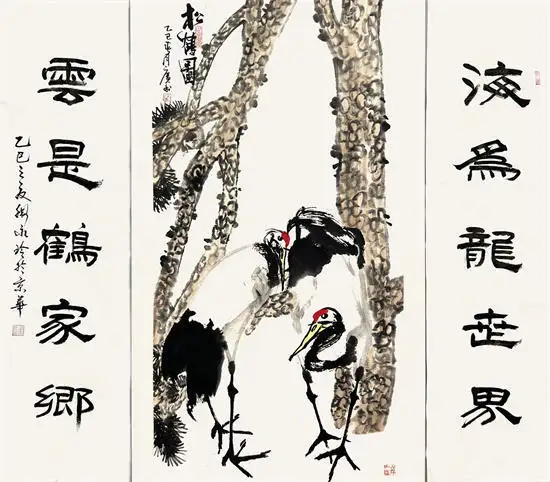 海爲龍世界
松鶴圖
乙巳
雲是鶴家鄉
乙巳之夏於京華